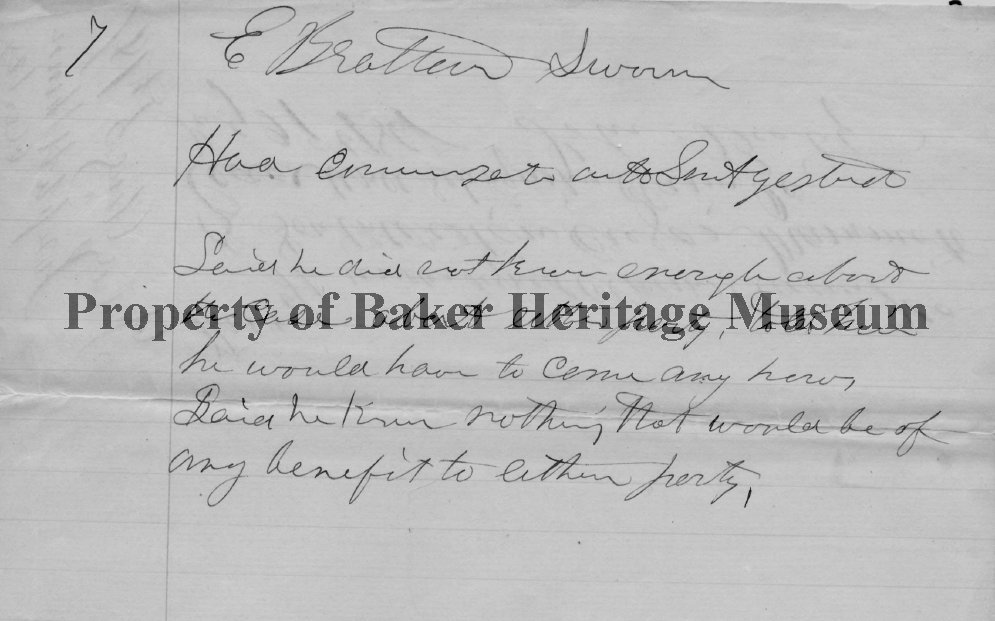 7 E Bratten Sworn
Had conversation with Smith yesterday
Said he did not know enough about
the case about either party, told him
Property of Baker Heritage Museum
he would have to come any how,
Said he knew nothing that would be of
any benefit to either party,